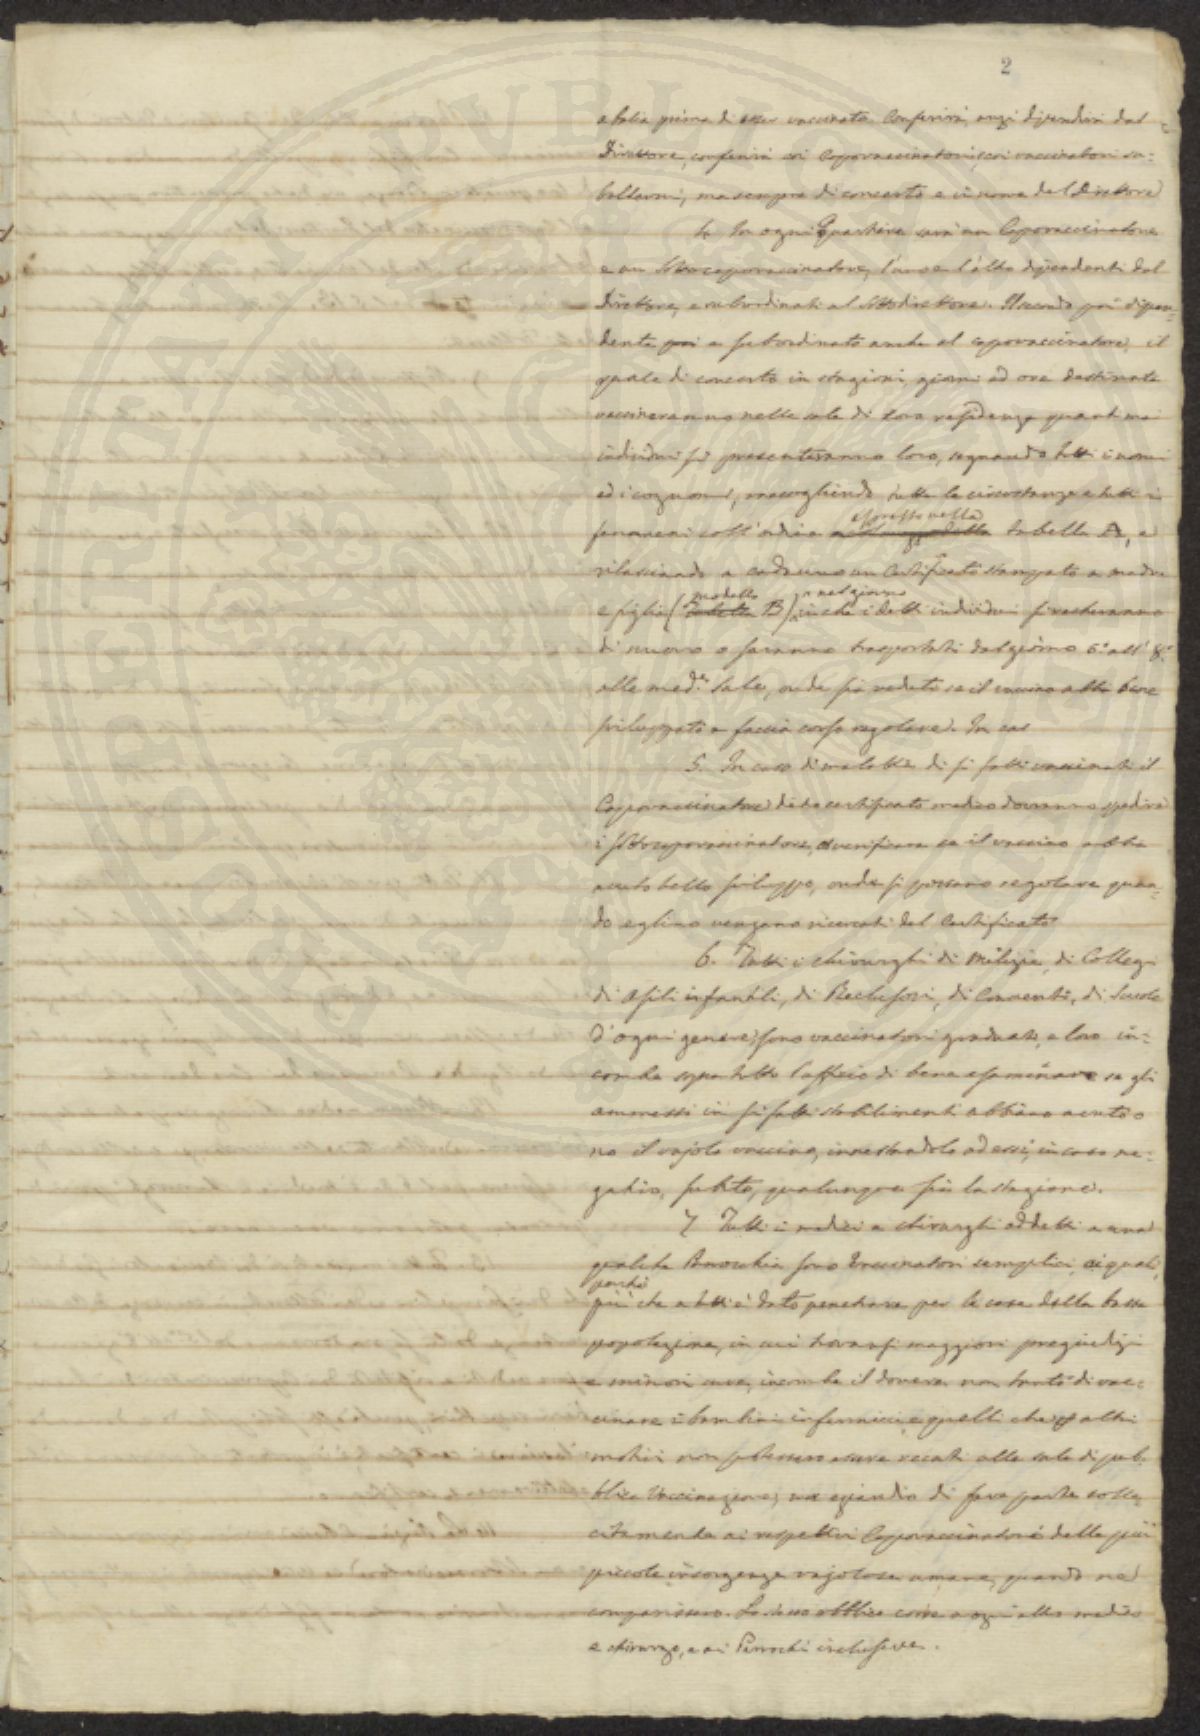 2
e balia prima di esser vaccinato. Conferirà, anzi dipenderà dal
Direttore, conferirà coi Capovaccinatori, coi vaccinatori su-
balterni, ma sempre di concerto e in nome del Direttore
4. In ogni Quartiere sarà un Capovaccinatore
e un Sottocapovaccinatore, l'uno e l'altro dipendenti dal
Direttore, e subordinati al Sottodirettore. Il secondo poi dipen-
dente poi e subordinato anche al capovaccinatore, il
quale di concerto in stagioni, giorni ed ore destinate
vaccineranno nelle sale di loro residenza quanti mai
individui si presenteranno loro, segnando tutti i nomi
ed i cognomi, raccogliendo tutte le circostanze e tutti i
espresso nella
fenomeni coll'ordine tabella A, e
rilasciando a cadauno un Certificato stampato a madre
modello nel giorno
e figlia (Tabella B) in che i detti individui si recheranno
di nuovo o saranno trasportati dal giorno 6.º all' 8.º
alle med.e Sale, onde sia veduto se il vaccino abbia bene
sviluppato e faccia corso regolare. In cas
5. In caso di malattia di sì fatti vaccinati il
Capovaccinatore dietro certificato medico dovranno spedire
i Sottocapovaccinatore, a verificare se il vaccino abbia
avuto bello sviluppo, onde si possano regolare quan-
do eglino vengano ricercati del Certificato
6. Tutti i chirurghi di Milizie, di Collegi
di Asili infantili, di Reclusori, di Conventi, di Scuole
d'ogni genere, sono vaccinatori graduati, e loro in-
combe sopra tutto l'uffizio di bene esaminare se gli
ammessi in sì fatti stabilimenti abbiano avuto o
no il vajolo vaccino, innestandolo ad essi, in caso ne-
gativo, subito, qualunque sia la stagione.
7 Tutti i medici e chirurghi addetti a una
qualche Parrocchia sono Vaccinatori semplici, ai quali
perchè
più che a tutti è dato penetrare per le case della bassa
popolazione, in cui trovansi maggiori pregiudizi
e minori cure, incombe il dovere non tanto di vac-
cinare i bambini infermicci, e quelli che per altri
motivi non potessero essere recati alle sale di pub-
blica Vaccinazione; ma eziandio di fare parte solle-
citamente ai rispettivi Capovaccinatori delle più
piccole insorgenze vajolose umane, quando ne
comparissero. Lo stesso obbligo corre a ogni altro medico
e chirurgo, e ai Parrochi inclusive.